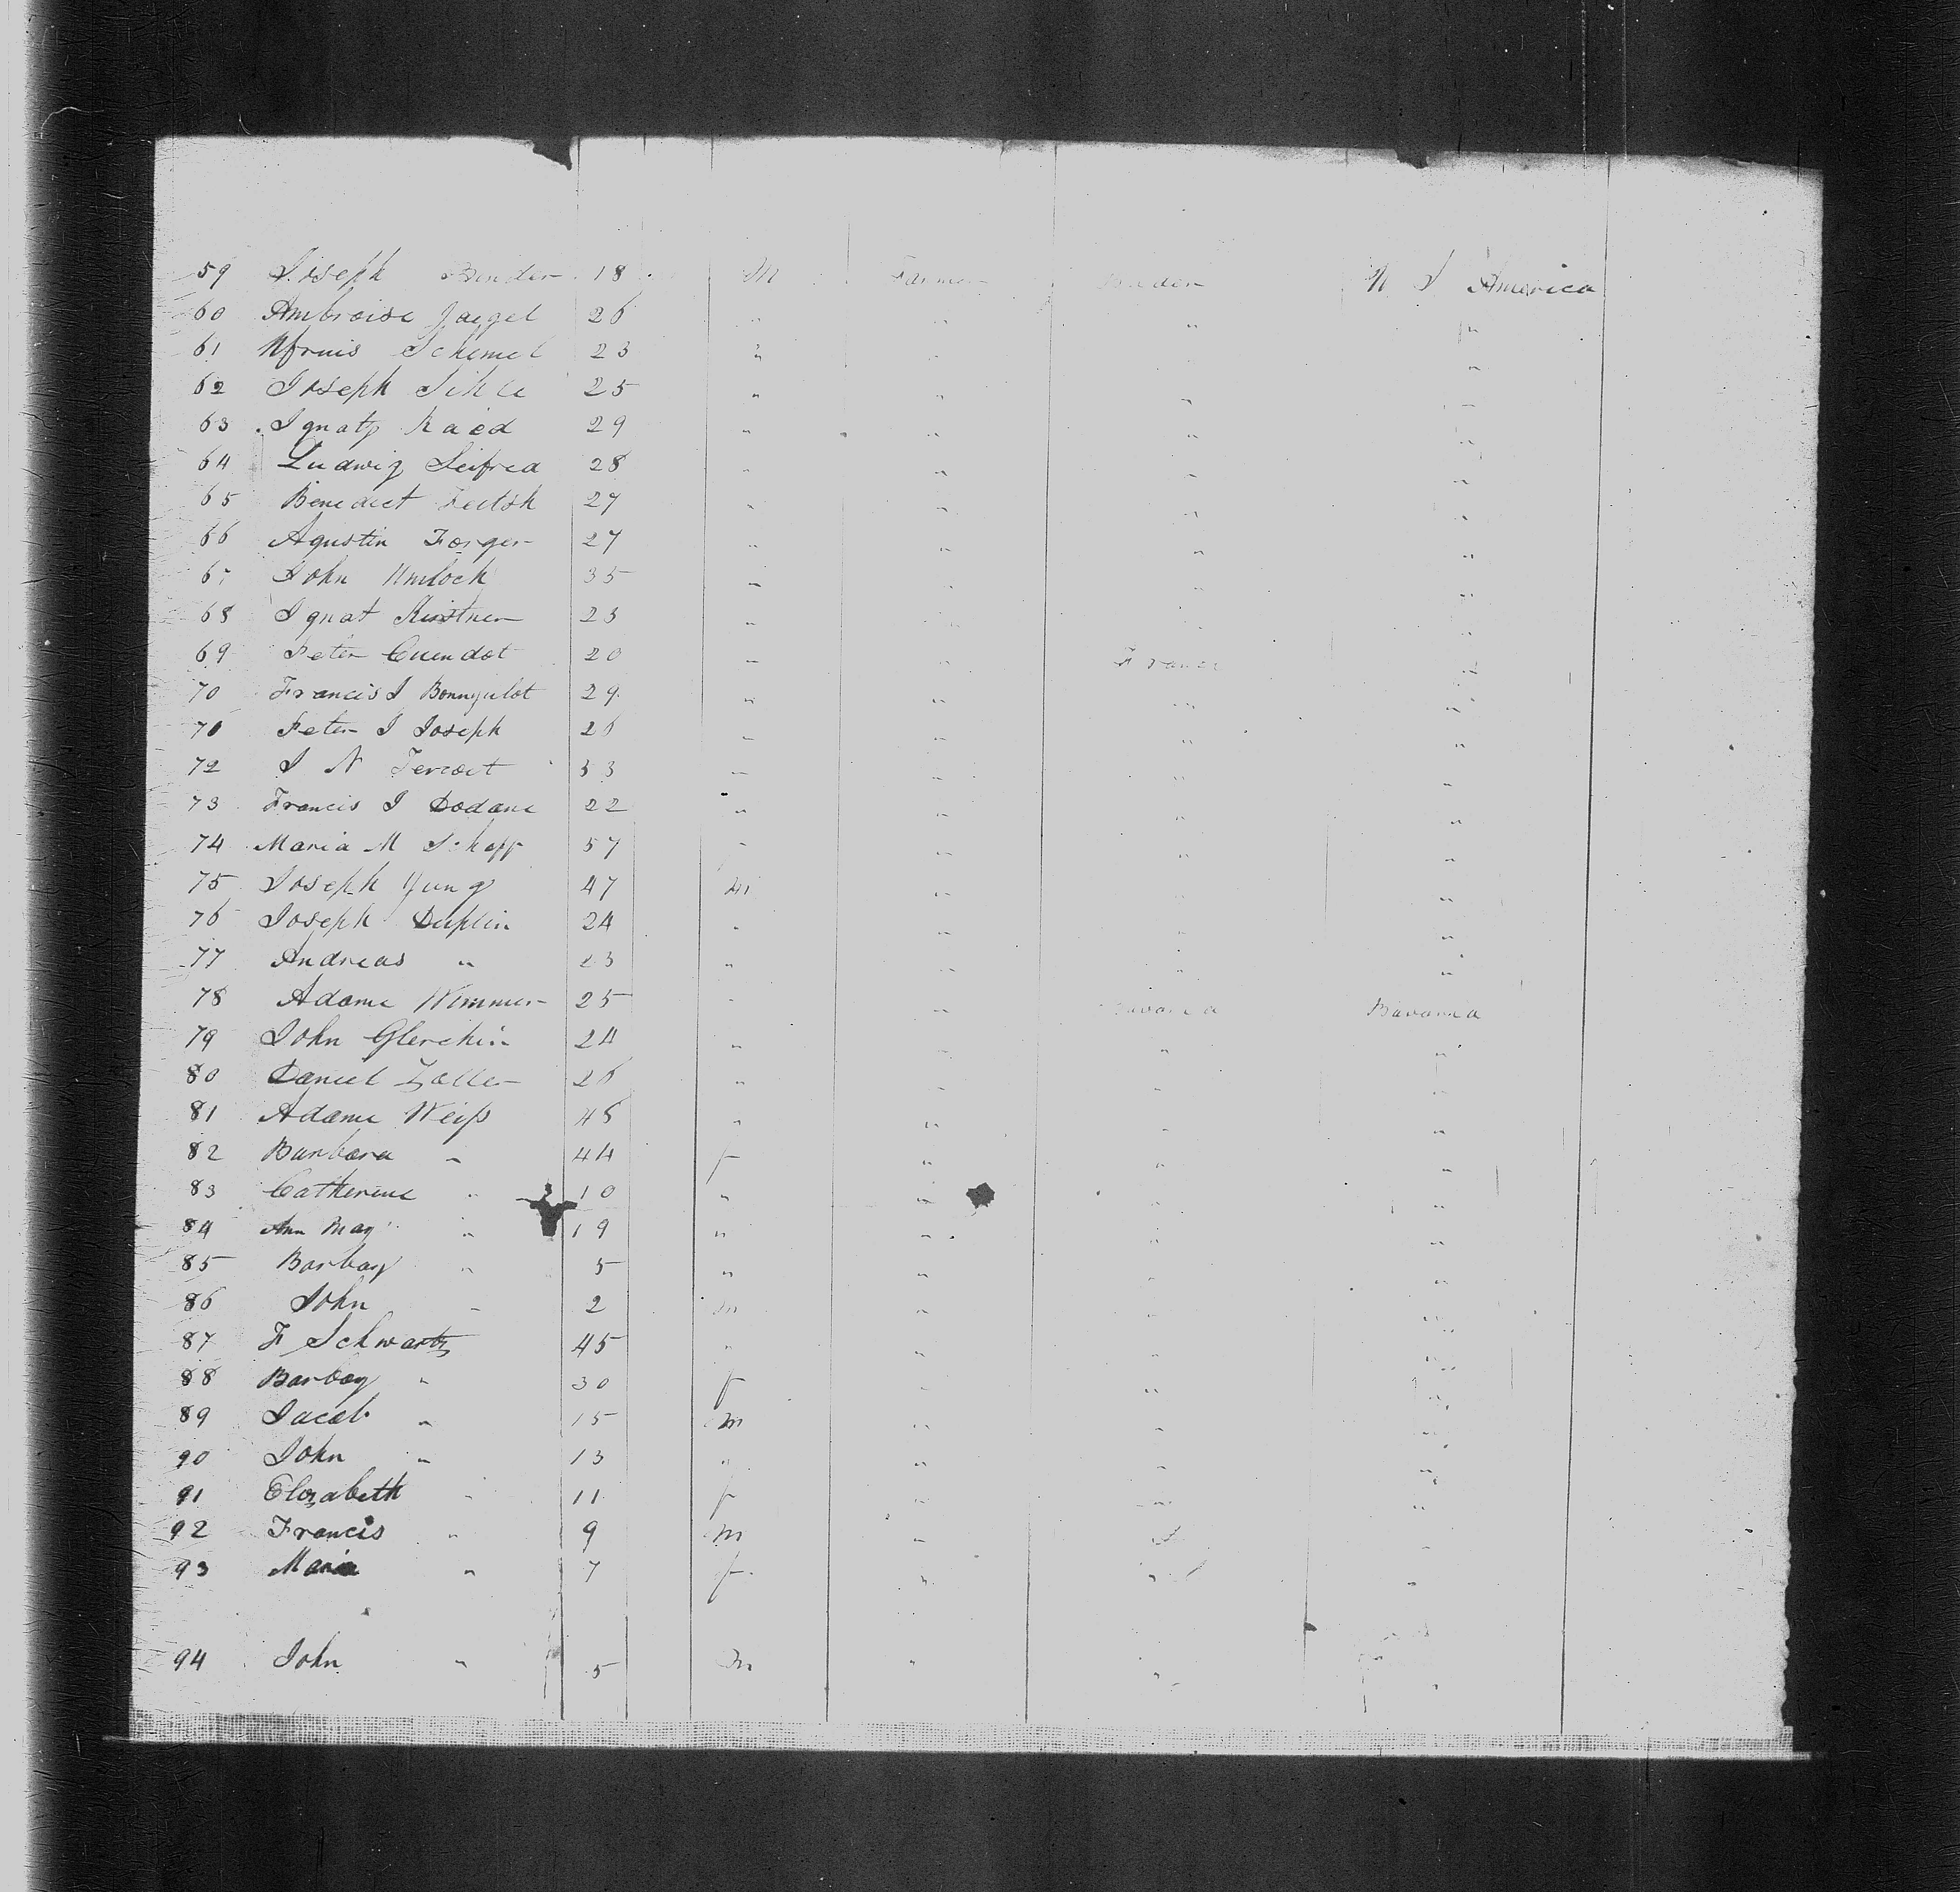 59 Joseph Bender 18 M Farmer Baden U S America
60 Ambroise Jaegel 26 " " " "
61 Schemel 23 " " " "
62 Joseph 25 " " " "
63 Ignatz 29 " " " "
64 Ludwig Seifred 28 " " " "
65 Benedict 27 " " " "
66 Agustin Forger 27 " " " "
67 John Umloch 35 " " " "
68 Ignat Kistner 23 " " " "
69 Peter Cuendot 20 " " France "
70 Francis J Bonnquelot 29 " " " "
71 Peter J Joseph 26 " " " "
72 J N 53 " " " "
73 Francis J Dodane 22 " " " "
74 Maria M Schopp 57 " " " "
75 Joseph Yung 47 M " " "
76 Joseph Duplin 24 " " " "
77 Andreas " 23 " " " "
78 Adame Wimmer 25 " " Bavaria Bavaria
79 John 24 " " " "
80 Daniel Zoller 26 " " " "
81 Adame Weiss 45 " " " "
82 Barbara " 44 f " " "
83 Catherine " 10 " " " "
84 Ann May " 19 " " " "
85 Barbay " 5 " " " "
86 John " 2 m " " "
87 F Schwartz 45 " " " "
88 Barbay " 30 f " " "
89 Jacob " 15 m " " "
90 John " 13 " " " "
91 Elizabeth " 11 f " " "
92 Francis " 9 m " " "
93 Maria " 7 f " " "
94 John " 5 m " " "